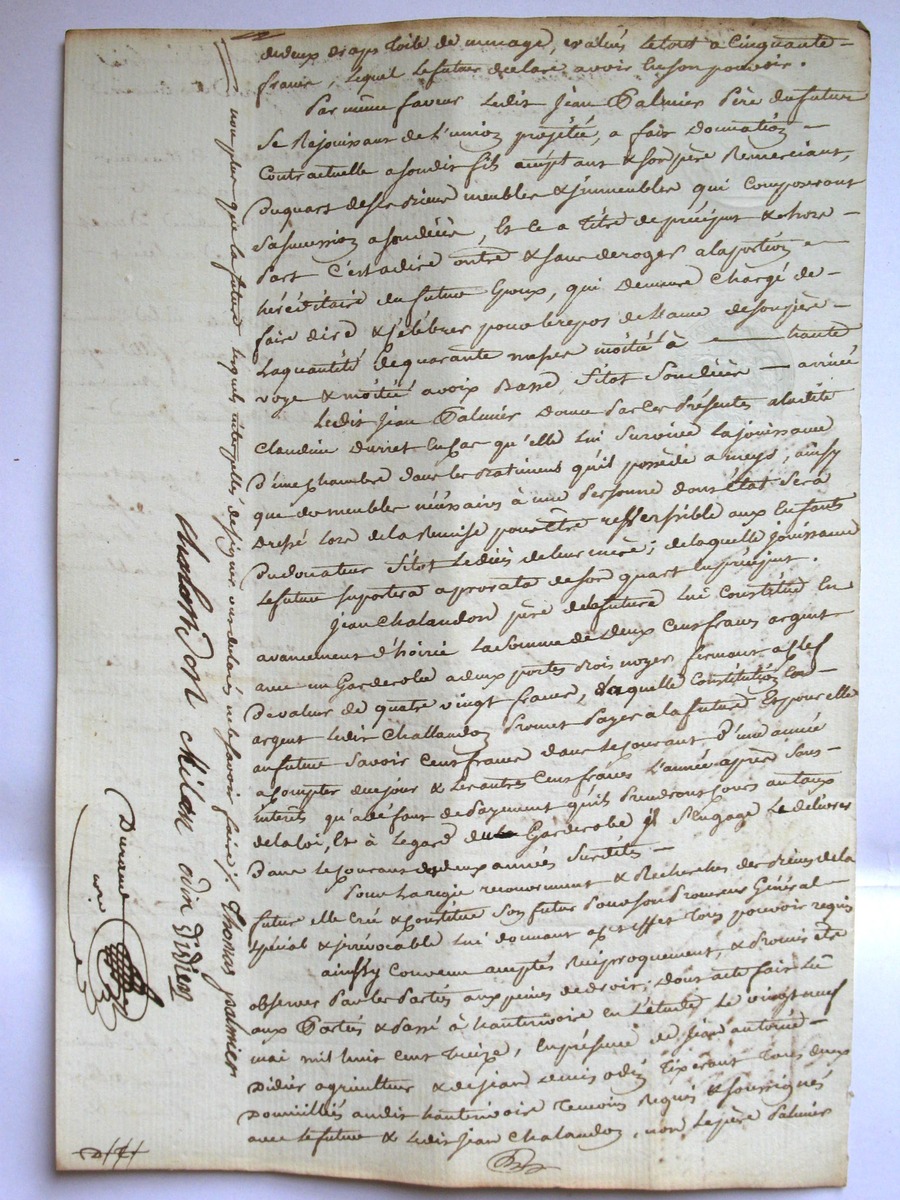 de deux draps toile de menage, evalués letout a Cinquante
francs, lequel le futur declare avoir en son pouvoir.
Par même faveur Ledit Jean Palmier Père du futur
Se Rejouissant de L'union projétée, a fait Donnation
Contractuelle asondit fils acceptant & sondpère Remerciant,
Duquart desesBiens meubles & jmmeubles qui Composeront
Sasuccession asondécès, Et ce a titre de préciput & hors
Part C'estadire outre & sans deroger alaportion
héréditaire du futur Epoux, qui Demeure Chargé de
faire dire & célébrer pour lerepos de Lame desonpère
Laquantité dequarante messes moitié à haute
voye & moitié avoix Basse Sitot Sondécès arrivé
Ledit Jean Palmier Donne Par ces Présentes aladite
Claudine Durret En Cas qu'elle lui Survive La jouissance
D'une chambre dans les Batimens qu'il possède a meys, ainsy
que des meubles nécéssaires à une Personne dont état Sera
Dressé lors de la Remise pour être reffersible aux Enfants
Dudonateur Sitot Ledécès de leur mère; de laquelle jouissance
Le futur Suportera aprorata de son quart en préciput.
Jean Chalandon père delafuture Lui Constitue En
avancement d'hoirie La Somme de Deux Cent francs argent
avec un Garderobe adeux portes Bois noyer fermant a Clef
De valeur de quatre vingt francs, Laquelle Constitution En
argent Ledit Challandon Promet Payer à la future Et pour elle
aufutur Savoir Cent francs dans le jourant d'une année
acompter dujour & Les autres Cent francs L'année après Sans
intérêts qu'a défaut de Payement qu'ils Prendront Cours autaux
delaloi, Et à Legard du Garderobe il S'engage Le délivrer
Dans Lejourant de deux années Surdites
Pour La regie recouvrement & Recherches des Biens de la
future elle Crée & Constitue Son futur Pour son Procureur Général
Spécial & jrrévocable Lui donnant a cet effet Tous pouvoir requis
ainssy Convenu acceptés Réciproquement, & Promis être
observé Par les Parties aux peines de droit; Dont acte fait Lû
aux Parties & Passé à hauterivoire en L'étude Le vingt neuf
mai mil huit cent treize, En présence de Jean antoine
Didier agriculteur & de jean denis odin tixerant Tous deux
Domiciliés audit hauterivoire Temoins Requis & Soussignés
avec le futur & Ledit Jean Chalandon, non Lepère Palmier
non plus que la future Lesquels interpellés de signer ont déclaré ne le savoir faire /. Thomas palmier
Chalandon childn odin Didier
Durand